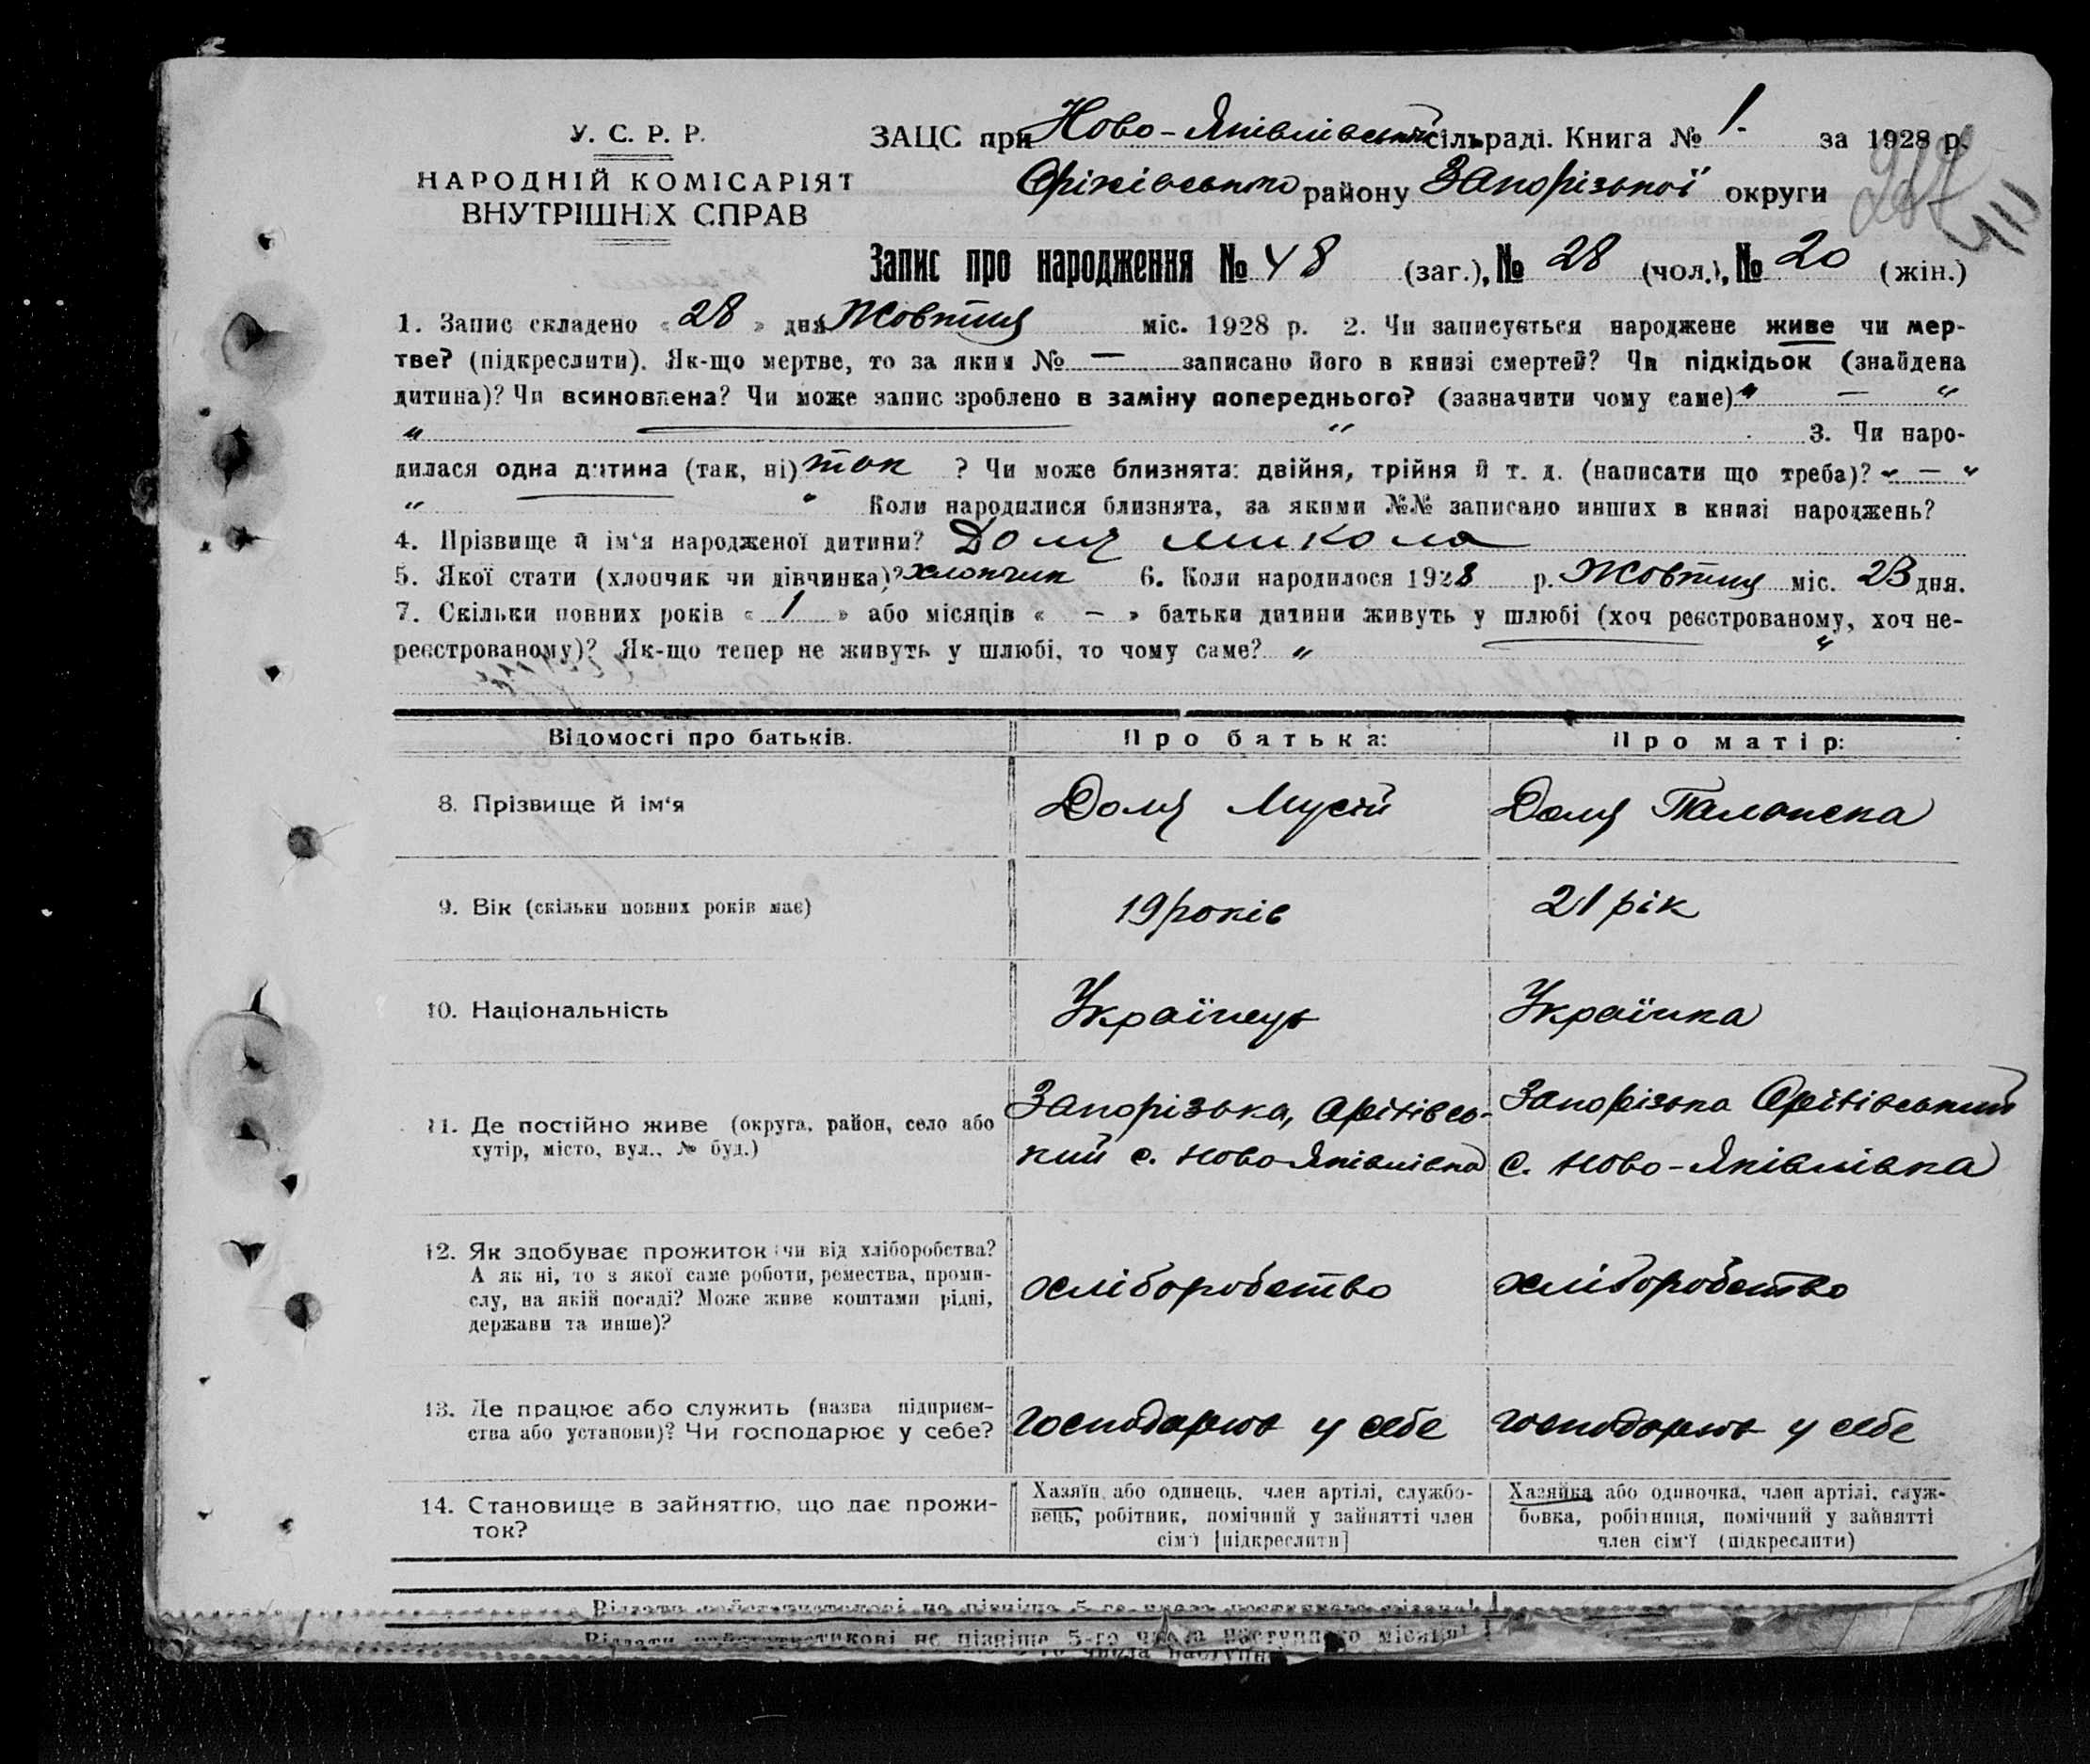 У. С. Р. Р.
НАРОДНІЙ КОМІСАРІЯТ
ВНУТРІШНІХ СПРАВ
ЗАЦС при Ново-Яківлівській сільраді. Книга № 1. за 1928 р.
Оріхівського району Запорізької округи
Запис про народження № 48 (заг.), № 28 (чол.), № 20 (жін.)
1. Запис складено « 28 » дня Жовтня міс. 1928 р. 2. Чи записується народжене живе чи мер-
тве? (підкреслити). Як-що мертве, то за яким № — записано його в книзі смертей? Чи підкідьок (знайдена
дитина)? Чи всиновлена? Чи може запис зроблено в заміну попереднього? (зазначити чому саме) " — "
" — " 3. Чи наро-
дилася одна дитина (так, ні) так ? Чи може близнята: двійня, трійня й т. д. (написати що треба)? " — "
" — " Коли народилися близнята, за якими №№ записано инших в книзі народжень?
4. Прізвище й ім'я народженої дитини? Доля Микола
5. Якої стати (хлопчик чи дівчинка)? хлопчик 6. Коли народилося 1928 р. Жовтня міс. 23 дня.
7. Скільки повних років « 1 » або місяців « — » батьки дитини живуть у шлюбі (хоч реєстрованому, хоч не-
реєстрованому)? Як-що тепер не живуть у шлюбі, то чому саме? " — "
Відомості про батьків. Про батька: Про матір:
8. Прізвище й ім'я Доля Мусій Доля Палажка
9. Вік (скільки повних років має) 19 років 21 рік
10. Національність Українець Українка
11. Де постійно живе (округа, район, село або
хутір, місто, вул., № буд.)
Запорізька, Оріхівсь-
кий с. Ново-Яківлівка
Запорізька Оріхівський
с. Ново-Яківлівка
12. Як здобуває прожиток: чи від хліборобства?
А як ні, то з якої саме роботи, ремества, проми-
слу, на якій посаді? Може живе коштами рідні,
держави та инше)?
хліборобство
хліборобство
13. Де працює або служить (назва підприєм-
ства або установи)? Чи господарює у себе?
господарює у себе
господарює у себе
14. Становище в зайняттю, що дає прожи-
ток?
Хазяїн або одинець, член артілі, службо-
вець, робітник, помічний у зайнятті член
сім'ї [підкреслити]
Хазяйка або одиночка, член артілі, служ-
бовка, робітниця, помічний у зайнятті
член сім'ї (підкреслити)
не пізніше 5-го числа наступного місяця!